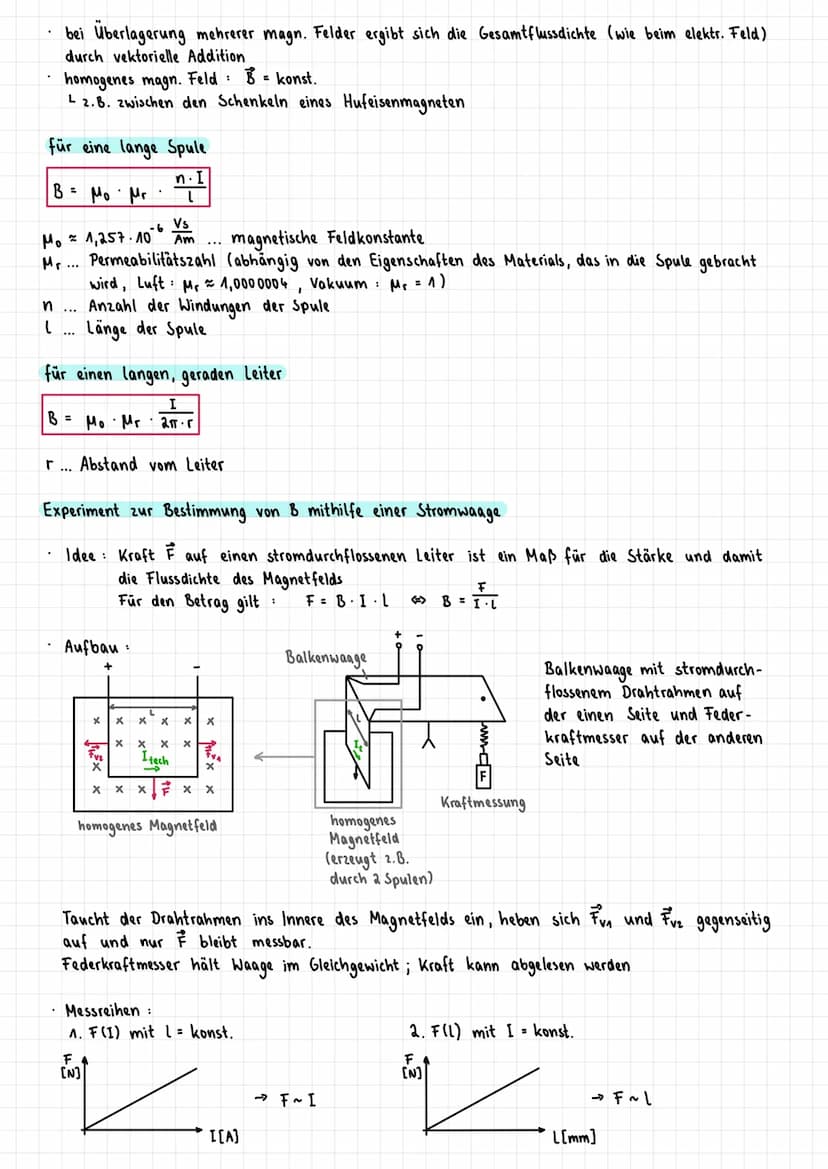 · bei Überlagerung mehrerer magn. Felder ergibt sich die Gesamtflussdichte (wie beim elektr. Feld)
durch vektorielle Addition
· homogenes magn. Feld : B⃗ = konst.
└ z.B. zwischen den Schenkeln eines Hufeisenmagneten
für eine lange Spule
B = μ₀ · μᵣ · n·I / l
μ₀ ≈ 1,257·10⁻⁶ Vs/Am ... magnetische Feldkonstante
μᵣ ... Permeabilitätszahl (abhängig von den Eigenschaften des Materials, das in die Spule gebracht
wird, Luft : μᵣ ≈ 1,0000004 , Vakuum : μᵣ = 1)
n ... Anzahl der Windungen der Spule
l ... Länge der Spule
für einen langen, geraden Leiter
B = μ₀ · μᵣ · I / 2π·r
r ... Abstand vom Leiter
Experiment zur Bestimmung von B mithilfe einer Stromwaage
· Idee : Kraft F⃗ auf einen stromdurchflossenen Leiter ist ein Maß für die Stärke und damit
die Flussdichte des Magnetfelds
Für den Betrag gilt : F = B · I · l ⇔ B = F / I·l
· Aufbau :
+ -
L
x x x x x x
x x x x
F⃗v2 F⃗v1
I tech
x x
x x x F⃗ x x x
homogenes Magnetfeld
Balkenwaage
+ -
L
It
F
Kraftmessung
homogenes
Magnetfeld
(erzeugt z.B.
durch 2 Spulen)
Balkenwaage mit stromdurch-
flossenem Drahtrahmen auf
der einen Seite und Feder-
kraftmesser auf der anderen
Seite
Taucht der Drahtrahmen ins Innere des Magnetfelds ein, heben sich F⃗v1 und F⃗v2 gegenseitig
auf und nur F⃗ bleibt messbar.
Federkraftmesser hält Waage im Gleichgewicht ; Kraft kann abgelesen werden
· Messreihen :
1. F(I) mit l = konst.
F
[N]
→ F ~ I
I[A]
2. F(l) mit I = konst.
F
[N]
→ F ~ l
L[mm]